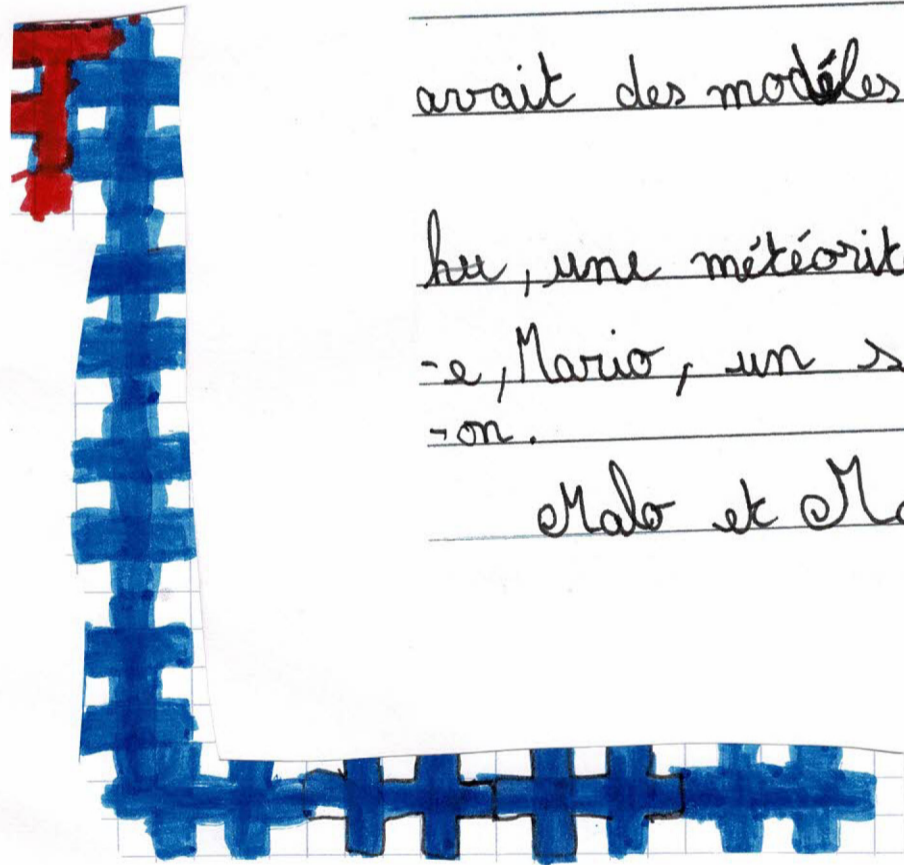 avait des modèles
hu, une météorit
-e, Mario, un s
-on.
Malo et Ma